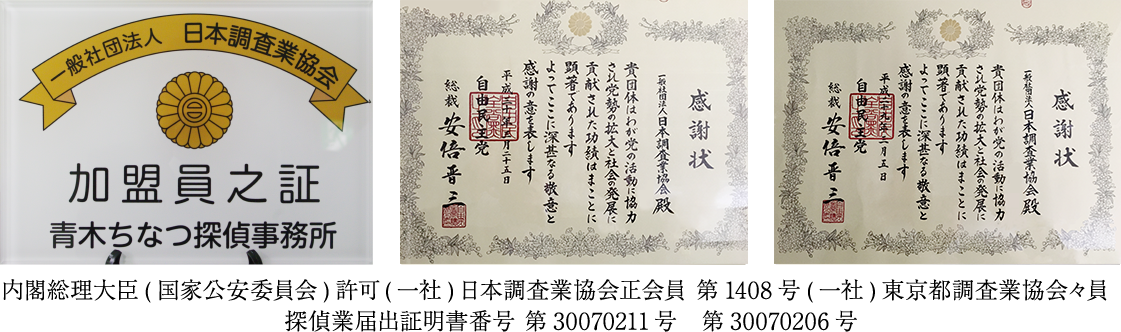 一般社団法人 日本調査業協会
加盟員之証
青木ちなつ探偵事務所
感謝状
一般社団法人日本調査業協会殿
貴団体はわが党の活動に協力
され党勢の拡大と社会の発展に
貢献された功績はまことに
顕著であります
よってここに深甚なる敬意と
感謝の意を表します
平成三十年三月二十五日
自由民主党
総裁 安倍晋三
感謝状
一般社団法人日本調査業協会殿
貴団体はわが党の活動に協力
され党勢の拡大と社会の発展に
貢献された功績はまことに
顕著であります
よってここに深甚なる敬意と
感謝の意を表します
平成二十九年三月五日
自由民主党
総裁 安倍晋三
内閣総理大臣(国家公安委員会)許可(一社)日本調査業協会正会員 第1408号(一社)東京都調査業協会々員
探偵業届出証明書番号 第30070211号 第30070206号